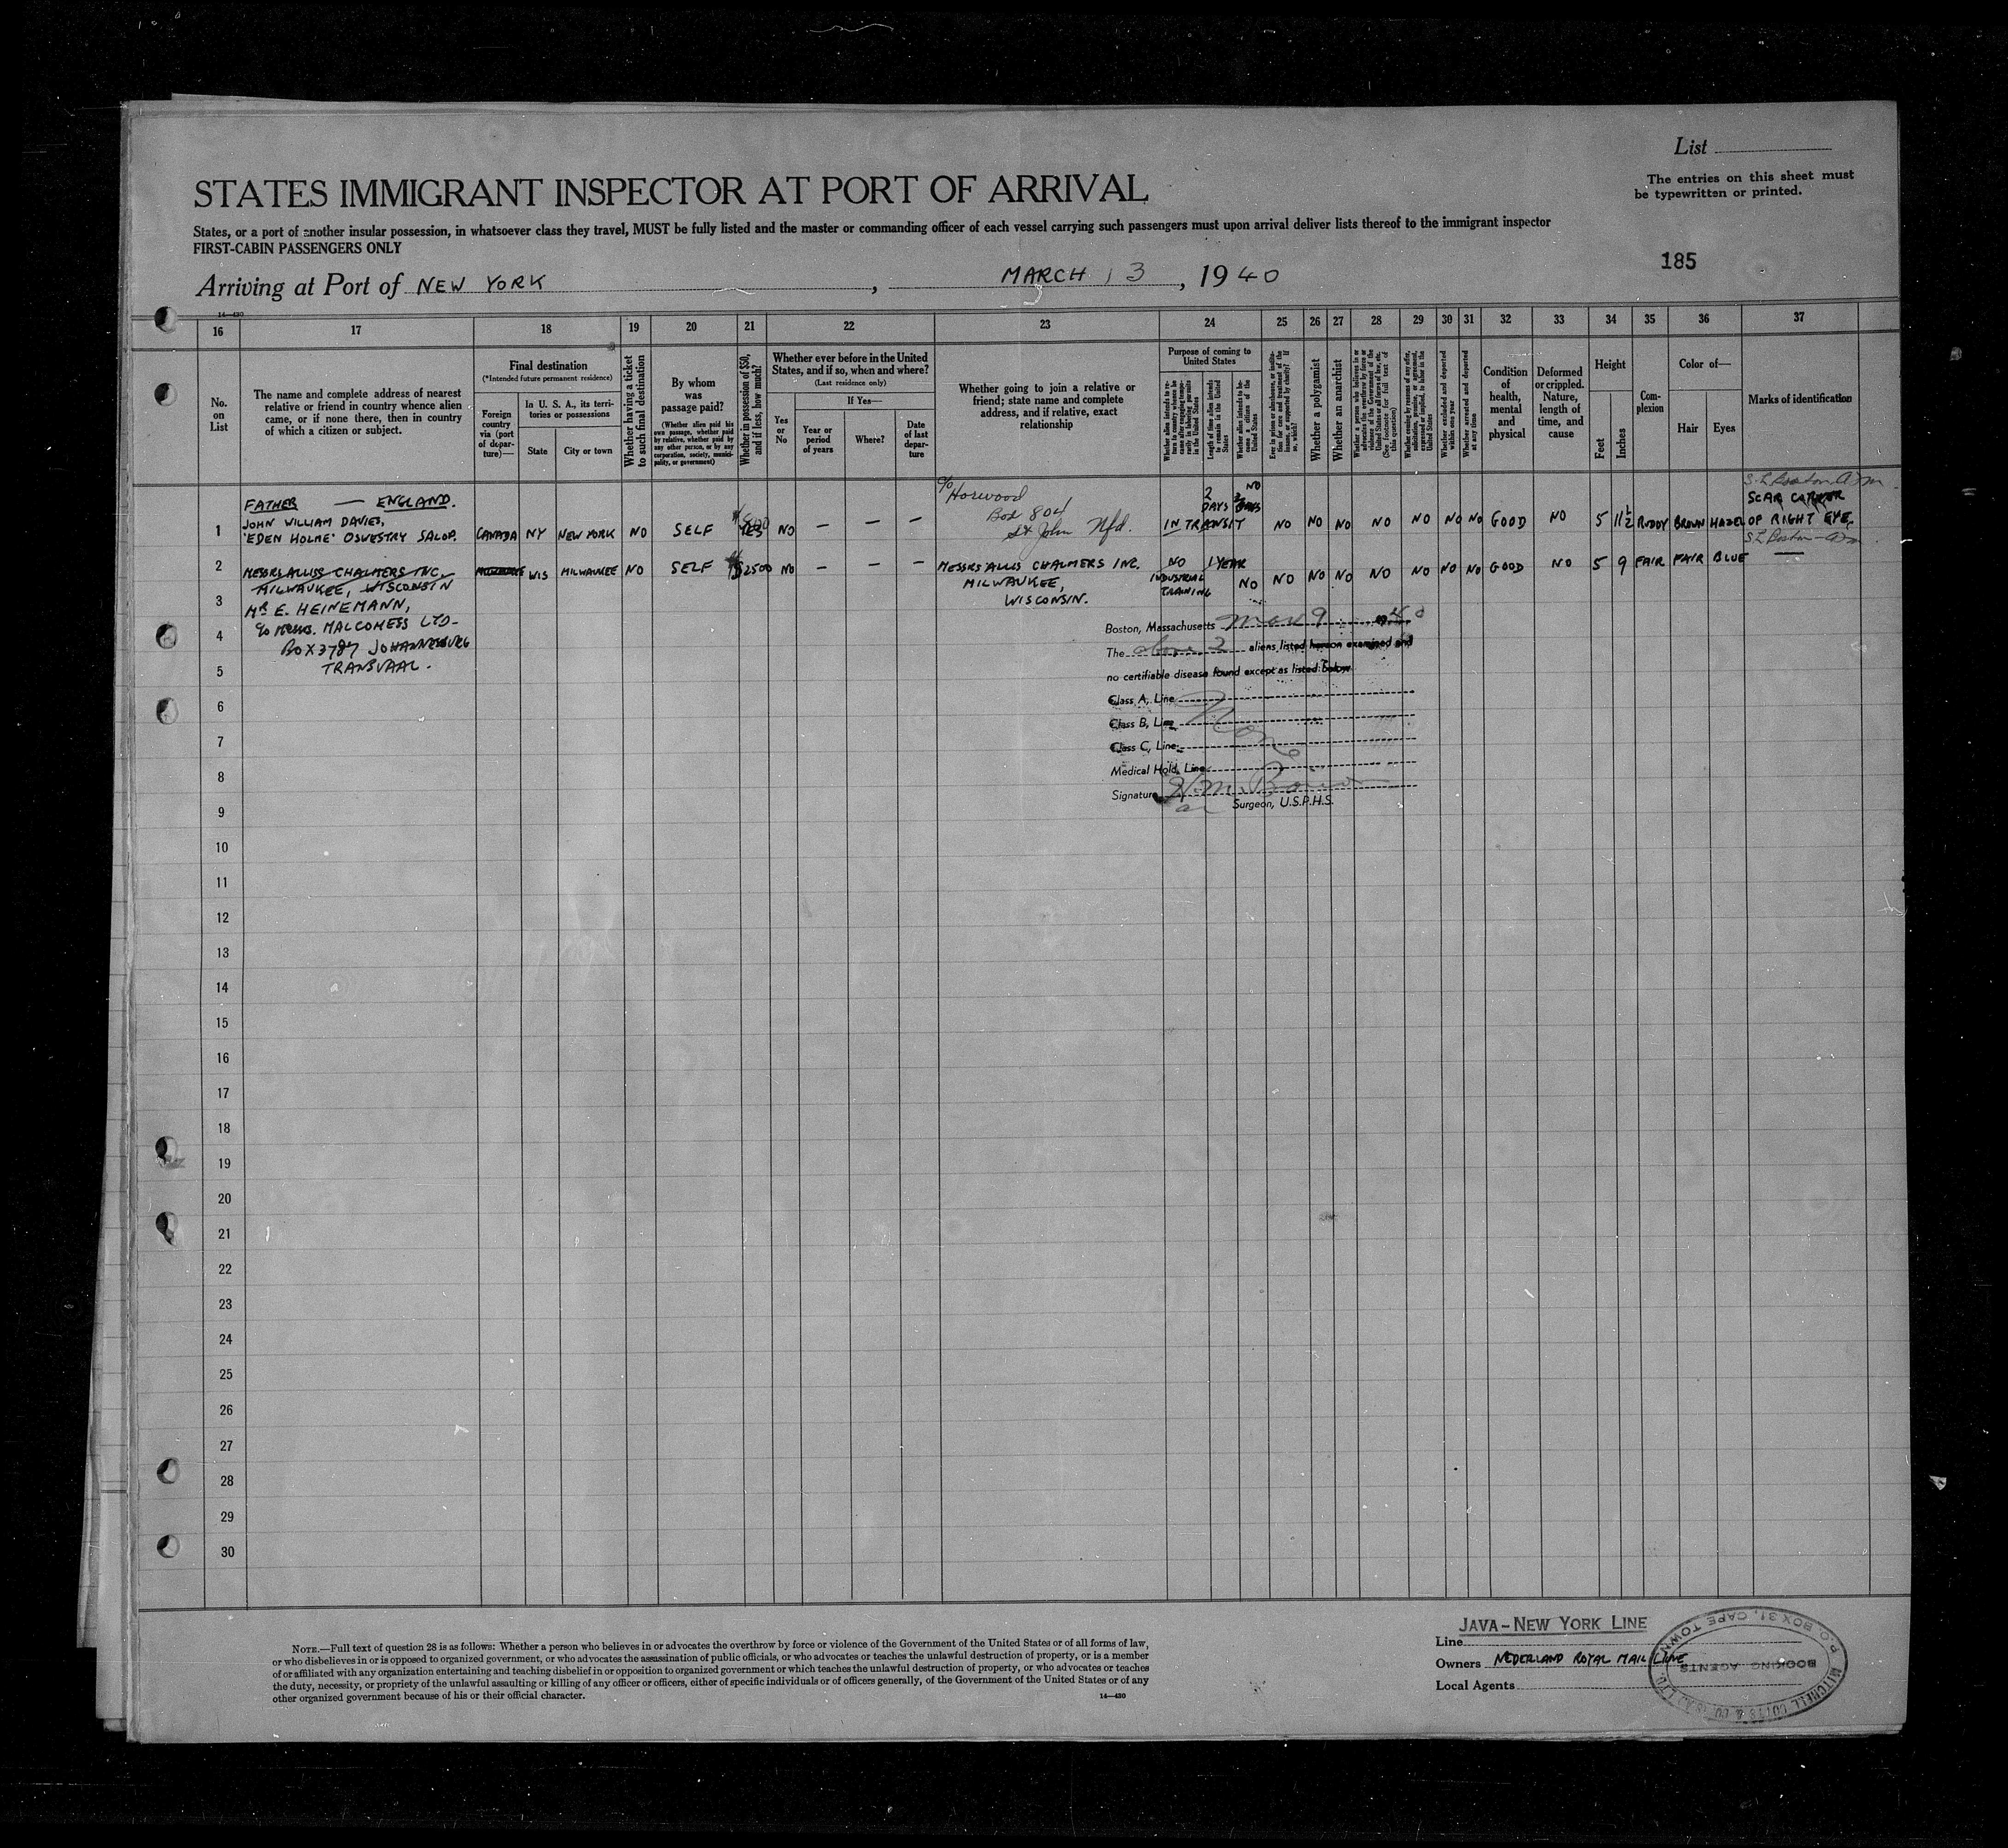 List
The entries on this sheet must
be typewritten or printed.
STATES IMMIGRANT INSPECTOR AT PORT OF ARRIVAL
States, or a port of another insular possession, in whatsoever class they travel, MUST be fully listed and the master or commanding officer of each vessel carrying such passengers must upon arrival deliver lists thereof to the immigrant inspector
FIRST-CABIN PASSENGERS ONLY
185
Arriving at Port of NEW YORK , MARCH 13 , 1940
14—430
16 17 18 19 20 21 22 23 24 25 26 27 28 29 30 31 32 33 34 35 36 37
No.
on
List
The name and complete address of nearest
relative or friend in country whence alien
came, or if none there, then in country
of which a citizen or subject.
Final destination
(*Intended future permanent residence)
Foreign
country
via (port
of depar-
ture)—
In U. S. A., its terri-
tories or possessions
State
City or town
Whether having a ticket
to such final destination
By whom
was
passage paid?
(Whether alien paid his
own passage, whether paid
by relative, whether paid by
any other person, or by any
corporation, society, munici-
pality, or government)
Whether in possession of $50,
and if less, how much?
Whether ever before in the United
States, and if so, when and where?
(Last residence only)
Yes
or
No
If Yes—
Year or
period
of years
Where?
Date
of last
depar-
ture
Whether going to join a relative or
friend; state name and complete
address, and if relative, exact
relationship
Purpose of coming to
United States
Length of time alien intends
to remain in the United
States
Whether alien intends to be-
come a citizen of the
United States
Whether a polygamist
Whether an anarchist
Whether excluded and deported
within one year
Whether arrested and deported
at any time
Condition
of
health,
mental
and
physical
Deformed
or crippled.
Nature,
length of
time, and
cause
Height
Feet
Inches
Com-
plexion
Color of—
Hair
Eyes
Marks of identification
FATHER — ENGLAND.
1 JOHN WILLIAM DAVIES,
"EDEN HOLME" OSWESTRY SALOP. CANADA NY NEW YORK NO SELF YES NO — — —
c/o Horwood
Box 804
St John Nfd.
2 DAYS NO
IN TRANSIT NO NO NO NO NO NO NO GOOD NO 5 11½ RUDDY BROWN HAZEL
SCAR CORNER
OF RIGHT EYE
2 MESSRS ALLIS CHALMERS INC.
MILWAUKEE, WISCONSIN
WIS MILWAUKEE NO SELF $2500 NO — — —
MESSRS ALLIS CHALMERS INC.
MILWAUKEE,
WISCONSIN.
NO 1 YEAR
INDUSTRIAL
TRAINING NO NO NO NO NO NO NO NO GOOD NO 5 9 FAIR FAIR BLUE —
3 MR E. HEINEMANN,
4 c/o MESSRS. MALCOMESS LTD.
BOX 3787 JOHANNESBURG
5 TRANSVAAL.
Boston, Massachusetts Mar 9 1940
The above 2 aliens listed hereon examined and
no certifiable disease found except as listed below
Class A, Line
Class B, Line None
Class C, Line
Medical Hold, Line
Signature
Surgeon, U.S.P.H.S.
6
7
8
9
10
11
12
13
14
15
16
17
18
19
20
21
22
23
24
25
26
27
28
29
30
NOTE.—Full text of question 28 is as follows: Whether a person who believes in or advocates the overthrow by force or violence of the Government of the United States or of all forms of law,
or who disbelieves in or is opposed to organized government, or who advocates the assassination of public officials, or who advocates or teaches the unlawful destruction of property, or is a member
of or affiliated with any organization entertaining and teaching disbelief in or opposition to organized government or which teaches the unlawful destruction of property, or who advocates or teaches
the duty, necessity, or propriety of the unlawful assaulting or killing of any officer or officers, either of specific individuals or of officers generally, of the Government of the United States or of any
other organized government because of his or their official character.
14—430
JAVA-NEW YORK LINE
Line
Owners NEDERLAND ROYAL MAIL LINE
Local Agents
MITCHELL COTTS & CO. (S.A.) LTD.
BOOKING AGENTS
P.O. BOX 31, CAPE TOWN